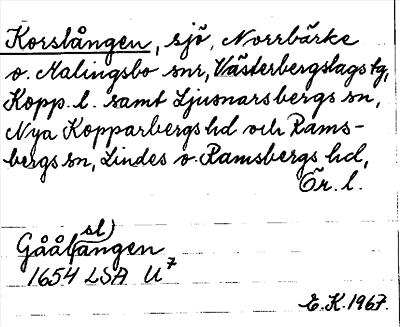 Korslången, sjö, Norrbärke
o. Malingsbo snr, Västerbergslags tg,
Kopp. l. samt Ljusnarsbergs sn,
Nya Kopparbergs hd och Rams-
bergs sn, Lindes o. Ramsbergs hd,
Ör. l.
sl)
Gåål(ången
1654 LSA U⁷
E.K. 1967.